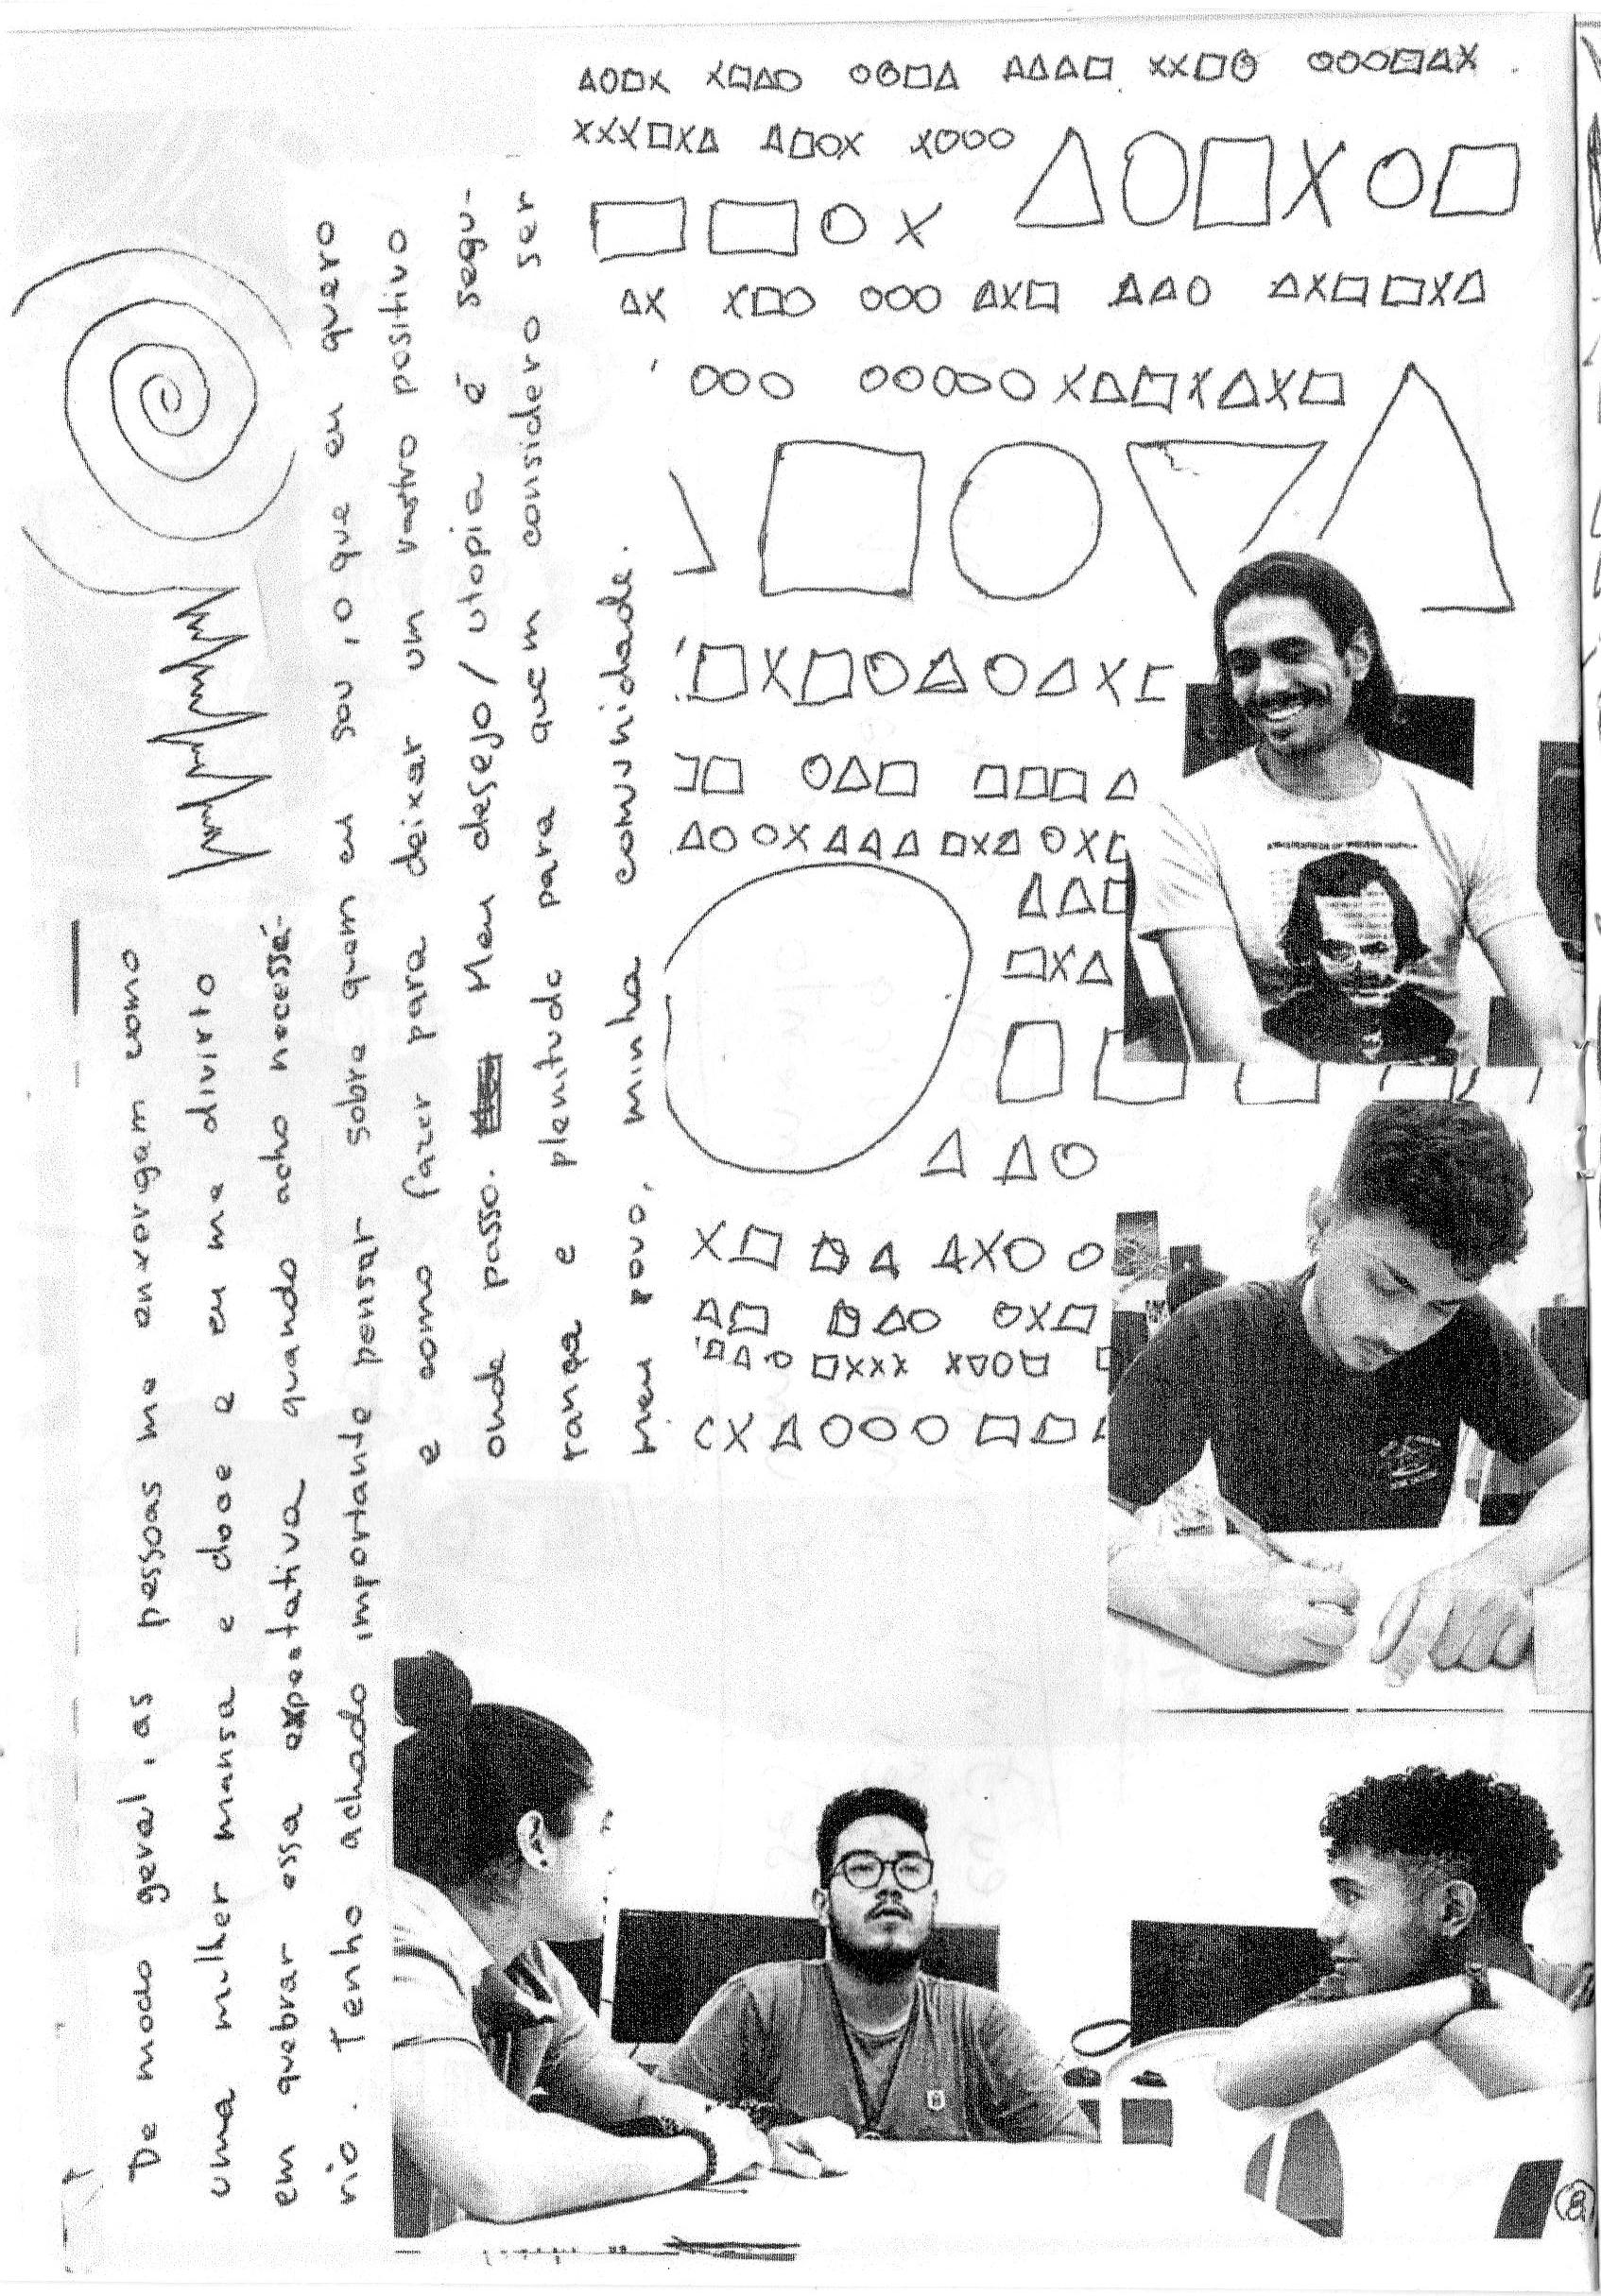 De modo geral, as pessoas me enxorgam como
uma mulher mansa e doce e eu me divirto
em quebrar essa expectativa quando acho necessá-
rio. Tenho achado importante pensar sobre quem eu sou, o que eu quero
e como fazer para deixar um rastro positivo
onde passo. Meu desejo/utopia é segu-
rança e plenitude para quem considero ser
meu povo, minha comunidade.
8